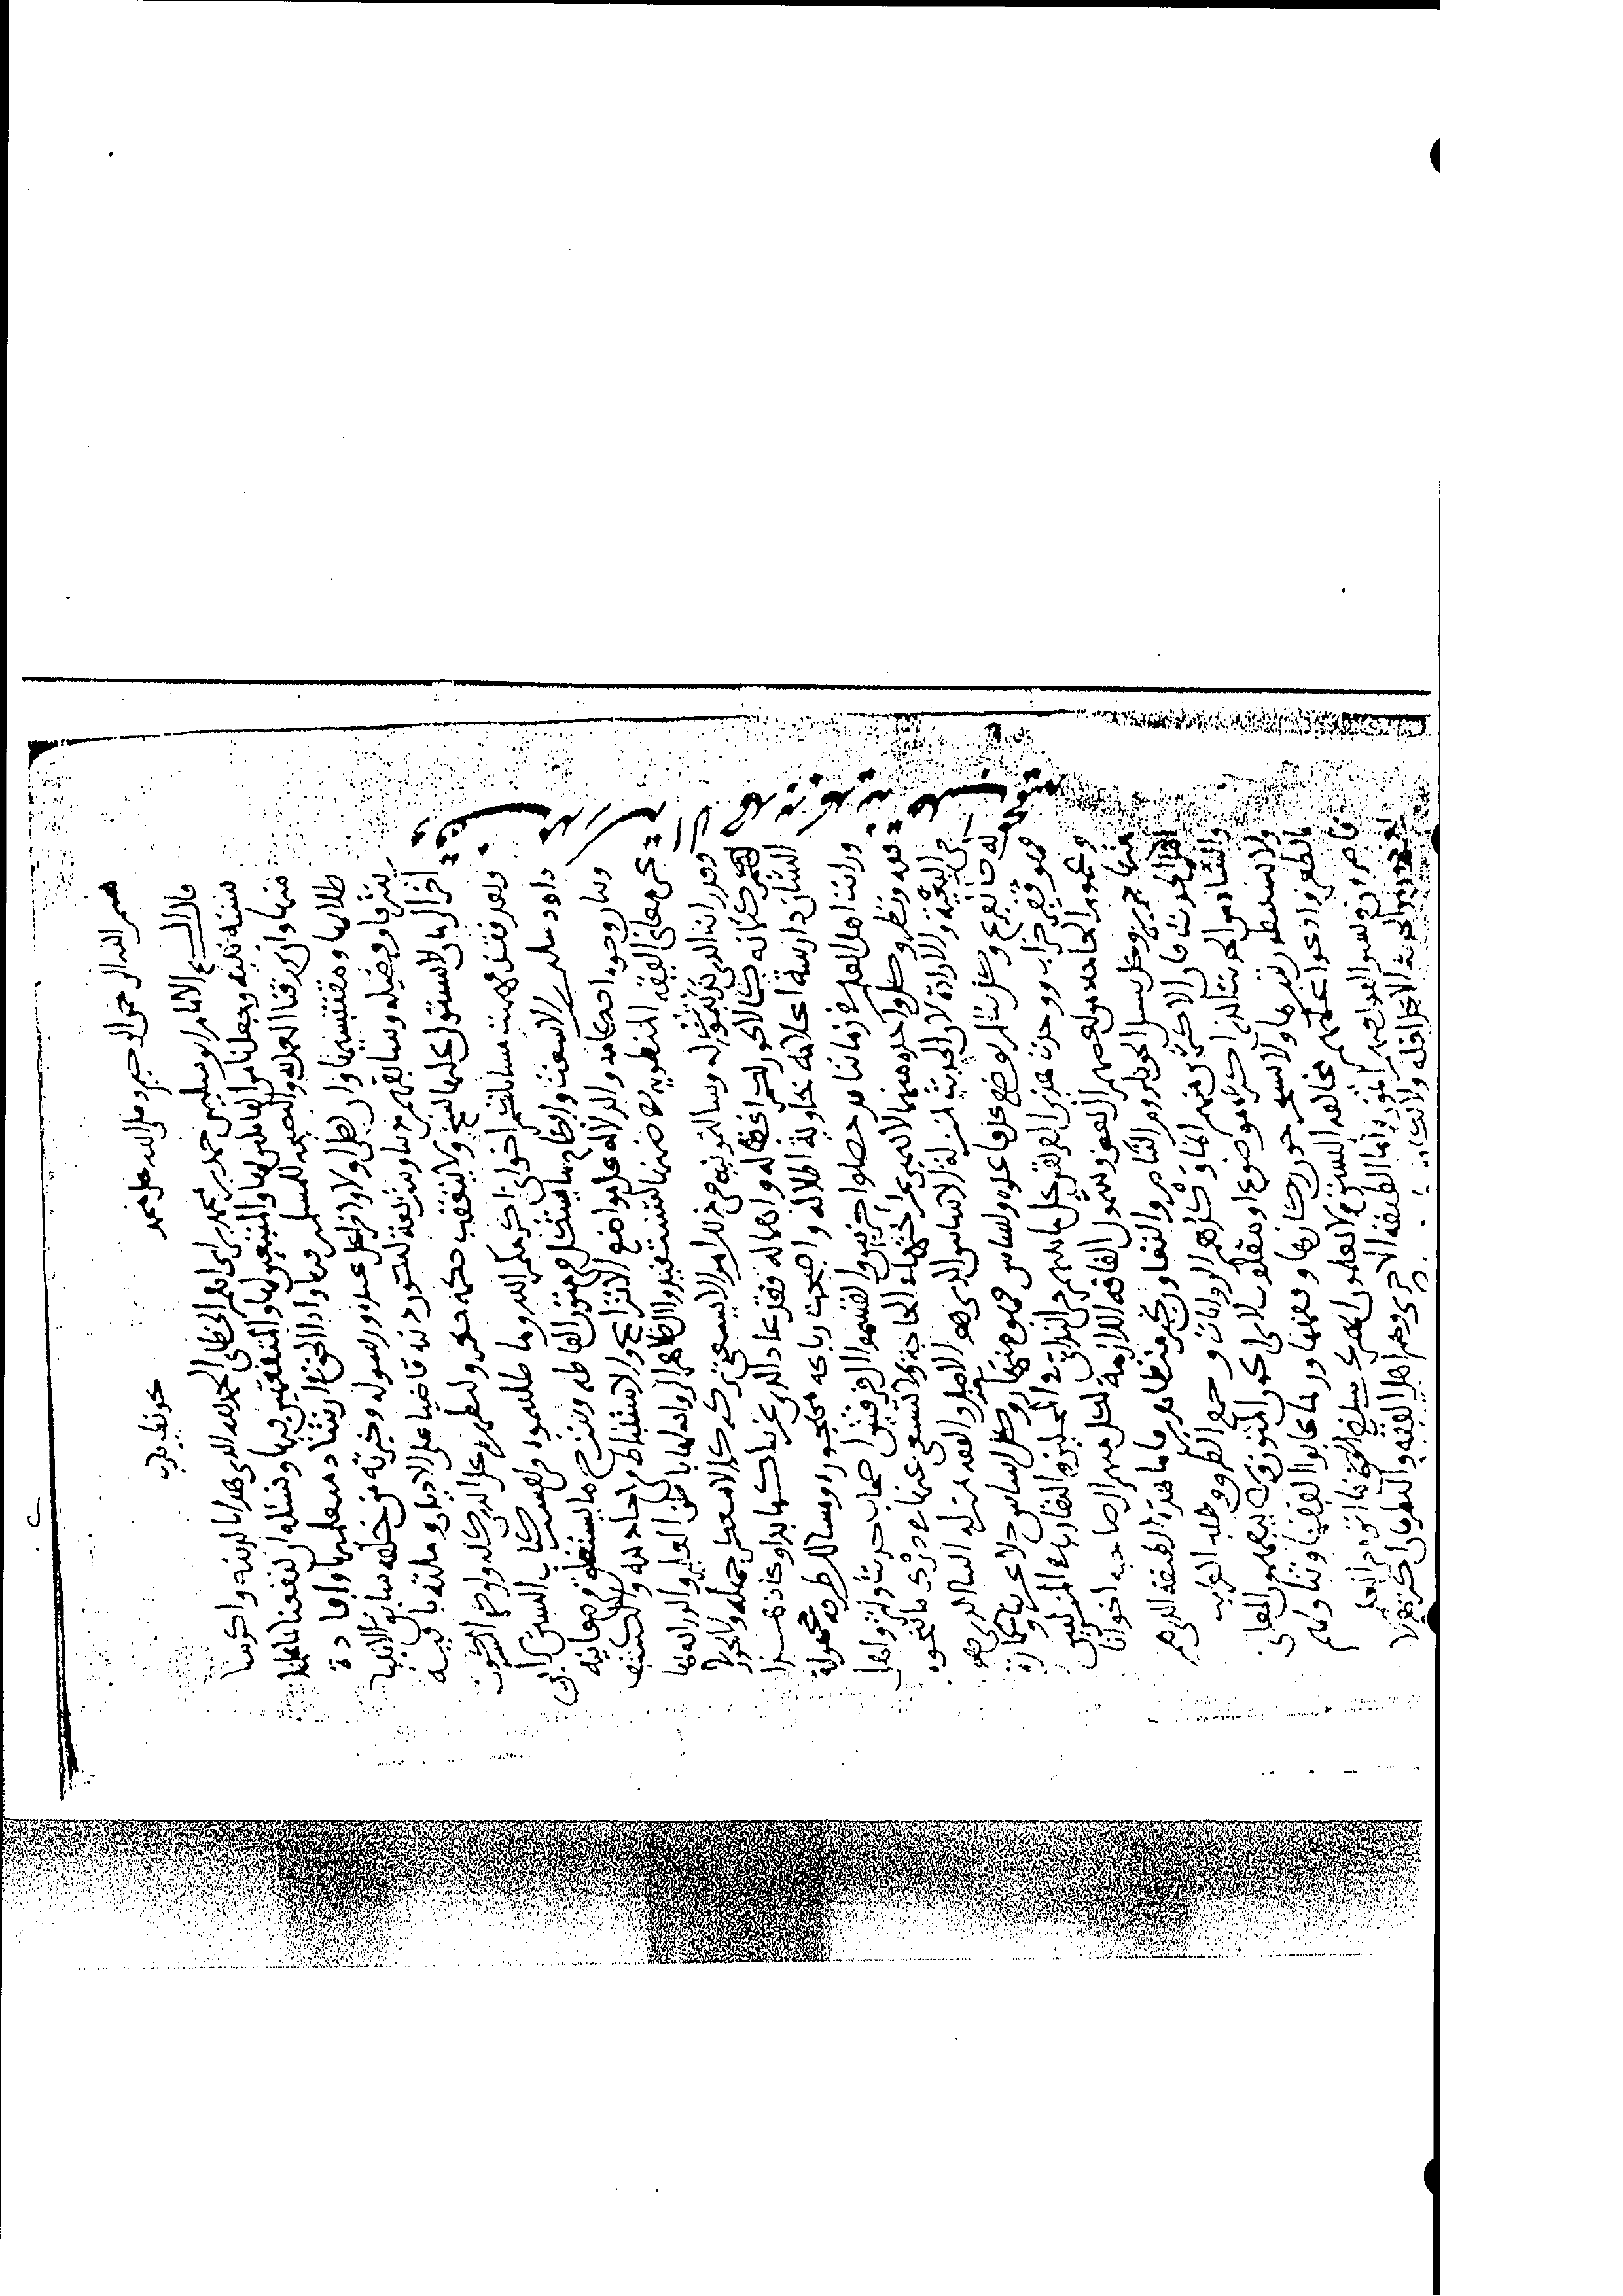 بسم الله الرحمن الرحيم وصلى الله على محمد
عونك يا رب
قال الشيخ الامام ابو سليمن حمد بن محمد بن ابراهيم الخطابي الحمد لله الذي هدانا لدينه واكرمنا
بسنة نبيه وجعلنا من العاملين بها والمتبعين لها والمتفقهين فيها ونسله ان ينفعنا بما علمنا
منها وان يرزقنا العمل به والنصيحة للمسلمين فيها واداء الحق في ارشاد متعلميها وافادة
طلابها ومقتبسيها وان يصلي اولا واخرا على عبده ورسوله وخيرته من خلقه سابق الانبياء
شرفا وفضيلة وسابقهم دينا وشريعة ليكون دينه قاضيا على الاديان وملته باقية
اخر الزمان لا يستولي عليها نسخ ولا يتعقب حكمه حكم وليظهره على الدين كله ولو كره المشركون
وبعد فقد فهمت مسايلتكم اخواني اكرمكم الله وما طلبتموه من تفسير كتاب السنن لابي
داود سليمن بن الاشعث وايضاح ما يشكل من متون الفاظه وشرح ما يستغلق من معانيه
وبيان وجوه احكامه والدلالة على مواضع الانتزاع والاستنباط من احاديثه والكشف
عن معاني الفقه المنطوية في ضمنها لتستفيدوا الى ظاهر الرواية لها باطن العلم والدراية بها
وقد رايت الذي ندبتموني له وسالتمونيه من ذلك امرا لا يسعني تركه كما لا يسعكم جهله ولا يجوز
لي كتمانه كما لا يجوز لكم اغفاله واهماله فقد عاد الدين غريبا كما بدا وعاد هذا
الشان دارسة اعلامه خاوية اطلاله واصبحت رباعه مهجورة ومسالك طرقه مجهولة
ورايت اهل العلم في زماننا قد حصلوا حزبين وانقسموا الى فرقتين اصحاب حديث واثر واهل
فقه ونظر وكل واحدة منهما لا تتميز عن اختها في الحاجة ولا تستغني عنها في درك ما تنحوه
من البغية والارادة لان الحديث بمنزلة الاساس الذي هو الاصل والفقه بمنزلة البناء الذي هو
له كالفرع وكل بناء لم يوضع على قاعدة واساس فهو منهار وكل اساس خلا عن بناء وعمارة
فهو قفر وخراب ووجدت هذين الفريقين على ما بينهم من التداني في المحلين والتقارب في المنزلتين
وعموم الحاجة من بعضهم الى بعض وشمول الفاقة اللازمة لكل منهم الى صاحبه اخوانا
متهاجرين وعلى سبيل الحق بلزوم التناصر والتعاون غير متظاهرين فاما هذه الطبقة الذين هم
اهل الحديث فان الاكثرين منهم انما وكدهم الروايات وجمع الطرق وطلب الغريب
والشاذ من الحديث الذي اكثره موضوع او مقلوب لا يراعون المتون ولا يتفهمون المعاني
ولا يستنبطون سرها ولا يستخرجون ركازها وفقهها وربما عابوا الفقهاء وتناولوهم
بالطعن وادعوا عليهم مخالفة السنن ولا يعلمون انهم عن مبلغ ما اوتوه من العلم
قاصرون وبسوء القول فيهم اثمون واما الطبقة الاخرى وهم اهل الفقه والنظر فان اكثرهم لا
يعرجون من الحديث الا على اقله ولا